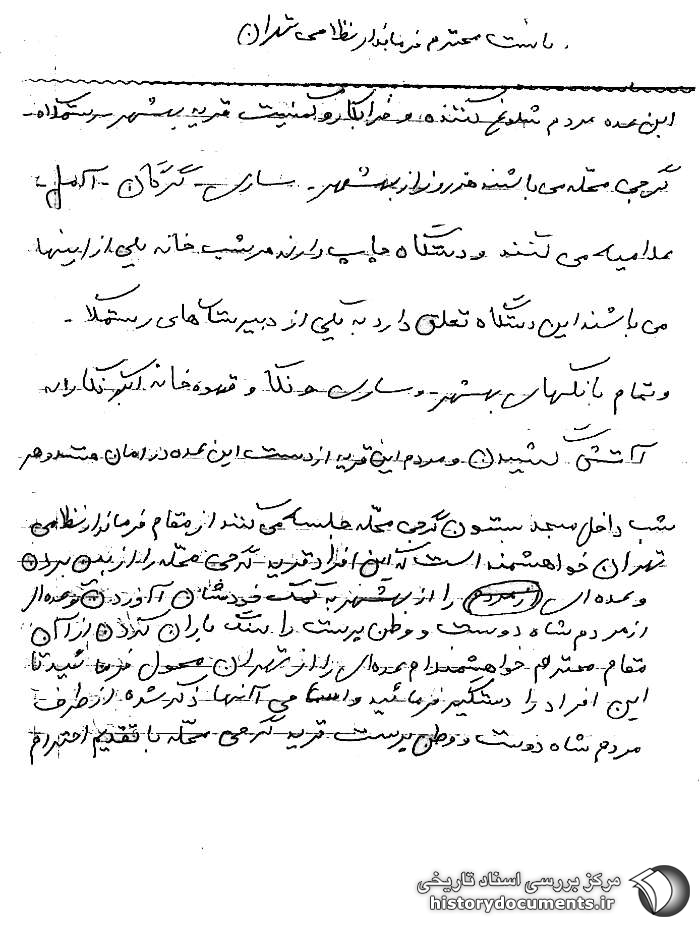 ریاست محترم فرماندار نظامی تهران
این عده مردم شلوغ کننده و خرابکار و کمنیست قریه بهشهر - رستمکلاه -
گرجی محله می باشند هر روز از بهشهر - ساری - گرگان - آمل -
می کنند و دستگاه چاپ دارند هر شب خانه یکی از اینها
می باشند این دستگاه تعلق دارد به یکی از دبیرستانهای رستمکلا -
و تمام بانکهای بهشهر - و ساری و نکا و قهوه خانه
آتش کشیدن و مردم این قریه از دست این عده در امان هستند و هر
شب داخل مسجد ستون گرجی محله جلسه می کنند از مقام فرماندار نظامی
تهران خواهشمند است که این افراد قریه گرجی محله را از بین بردن
و عده ای از مردم را از بهشهر به کمک خودشان آوردن و عده ای
از مردم شاه دوست و وطن پرست را سنگ باران کردن از آن
مقام محترم خواهشمندام عده ای را از تهران محول فرمائید تا
این افراد را دستگیر فرمائید و اسامی آنها ذکر شده از طرف
مردم شاه دوست و وطن پرست قریه گرجی محله با تقدیم احترام
مرکز بررسی اسناد تاریخی
historydocuments.ir